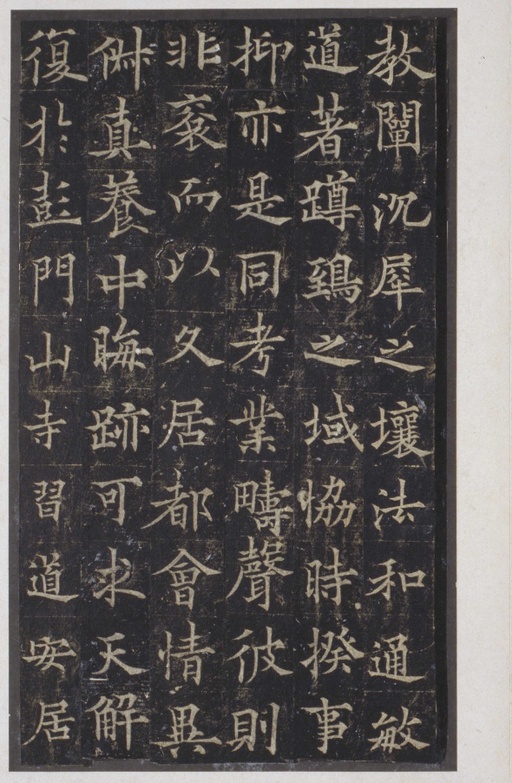 教闡沉犀之壤法和通敏
道著蹲鵄之域協時揆事
抑亦是同考業疇聲彼則
非袞而以久居都會情異
俶真養中晦跡可求天解
復於彭門山寺習道安居